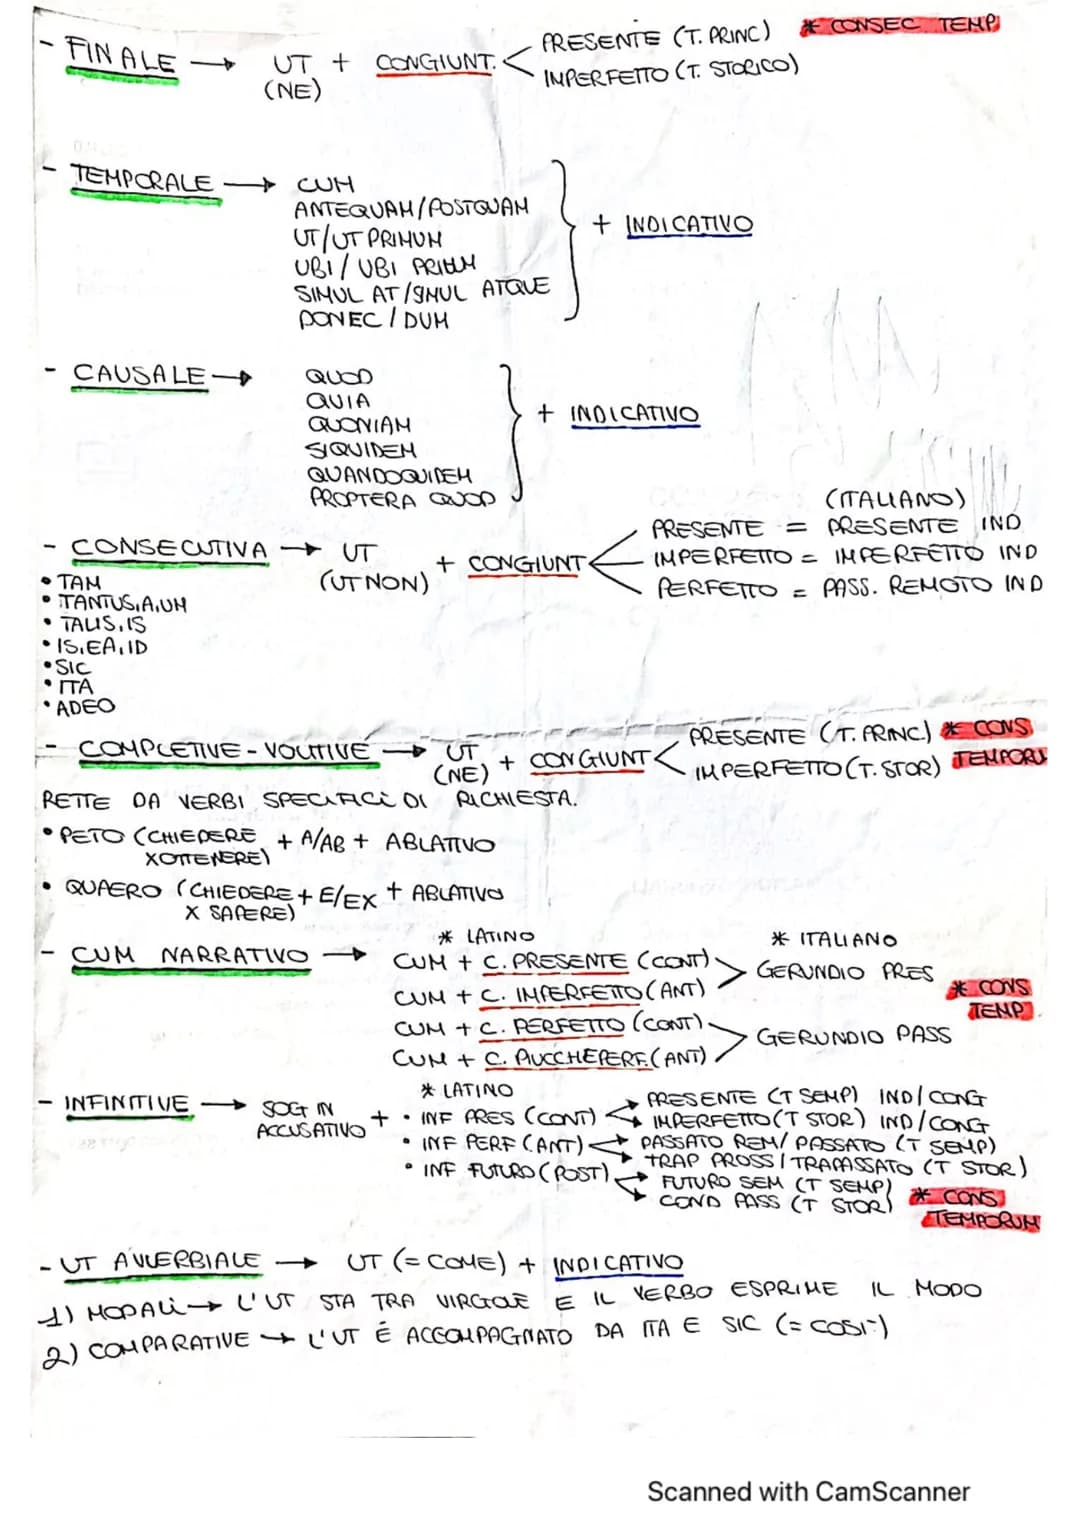 - FINALE → UT + CONGIUNT. < PRESENTE (T. PRINC) * CONSEC TEMP
(NE) IMPERFETTO (T. STORICO)
- TEMPORALE → CUM
ANTEQUAM/POSTQUAM
UT/UT PRIMUM
UBI/UBI PRIMUM
SIMUL AT/SIMUL ATQUE
DONEC/DUM
+ INDICATIVO
- CAUSALE → QUOD
QUIA
QUONIAM
SIQUIDEM
QUANDOQUIDEM
PROPTERA QUOD
+ INDICATIVO
(ITALIANO)
- CONSECUTIVA → UT (UT NON) + CONGIUNT <
PRESENTE = PRESENTE IND
IMPERFETTO = IMPERFETTO IND
PERFETTO = PASS. REMOTO IND
• TAM
• TANTUS,A,UM
• TALIS,IS
• IS,EA,ID
• SIC
• ITA
• ADEO
- COMPLETIVE - VOLITIVE → UT (NE) + CONGIUNT < PRESENTE (T. PRINC) * CONS
IMPERFETTO (T. STOR) TEMPORU
RETTE DA VERBI SPECIFICI DI RICHIESTA.
• PETO (CHIEDERE X OTTENERE) + A/AB + ABLATIVO
• QUAERO (CHIEDERE X SAPERE) + E/EX + ABLATIVO
* LATINO * ITALIANO
- CUM NARRATIVO → CUM + C. PRESENTE (CONT)
CUM + C. IMPERFETTO (ANT)
> GERUNDIO PRES
* CONS TEMP
CUM + C. PERFETTO (CONT)
CUM + C. PIUCCHEPERF. (ANT)
> GERUNDIO PASS
* LATINO
- INFINITIVE → SOGG IN ACCUSATIVO +
• INF PRES (CONT) → PRESENTE (T SEMP) IND/CONG
→ IMPERFETTO (T STOR) IND/CONG
• INF PERF (ANT) → PASSATO REM/ PASSATO (T SEMP)
→ TRAP PROSS/TRAPASSATO (T STOR)
• INF FUTURO (POST) → FUTURO SEM (T SEMP)
→ COND PASS (T STOR)
* CONS TEMPORUM
- UT AVVERBIALE → UT (= COME) + INDICATIVO
1) MODALI → L'UT STA TRA VIRGOLE E IL VERBO ESPRIME IL MODO
2) COMPARATIVE → L'UT È ACCOMPAGNATO DA ITA E SIC (= COSI')
Scanned with CamScanner